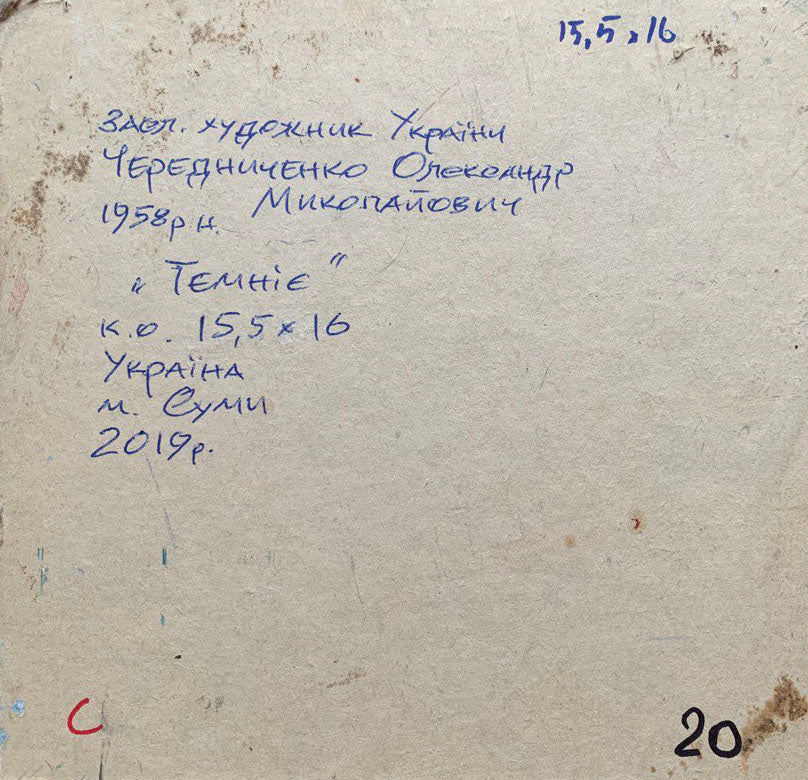 15,5 x 16
Засл. художник України
Чередниченко Олександр
Миколайович
1958р н.
„Темніє"
к.о. 15,5 x 16
Україна
м. Суми
2019р.
С
20